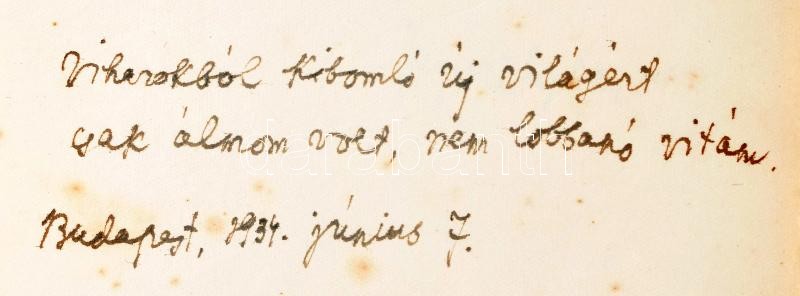 Viharokból kibomló új világért
csak álmom volt, nem lobbanó vitám.
darabanth
Budapest, 1934. június 7.